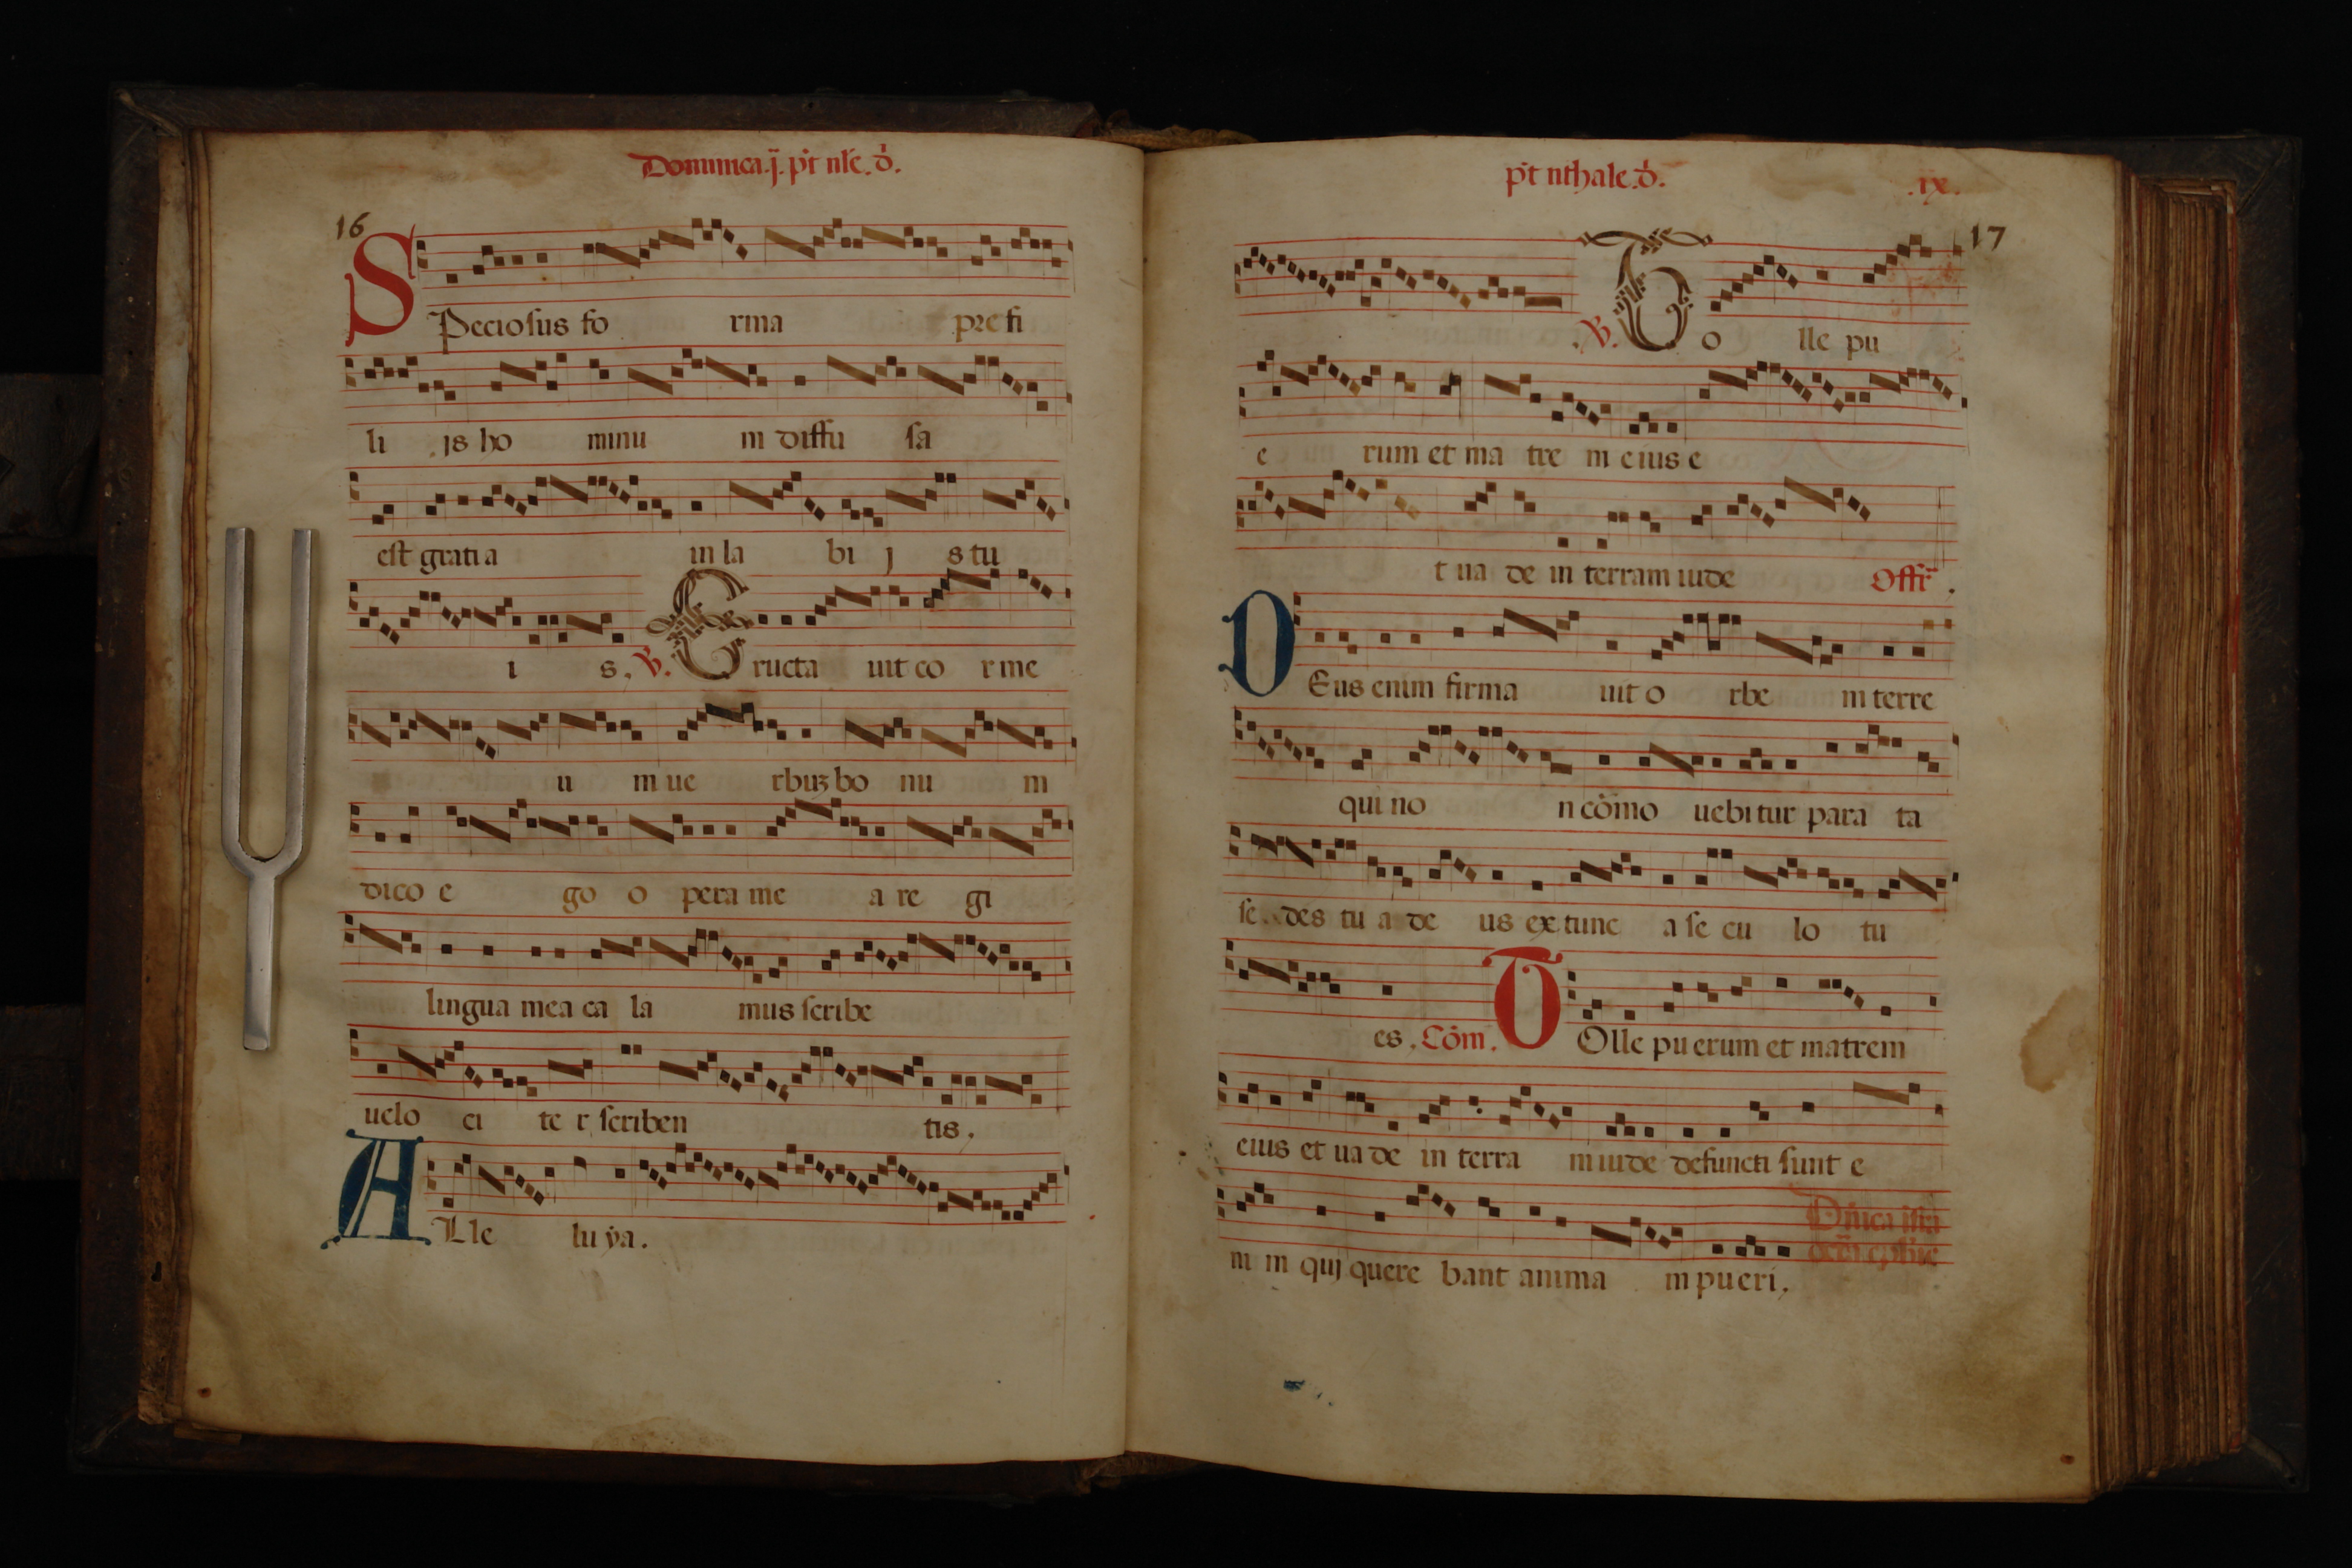 Dominica .j. p̄t nłe. d̄.
16
SPeciosus fo rma pre fi
li js ho minu m diffu sa
est grati a in la bi j s tu
i s. ℣. Eructa uit co r me
u m ue rbuʒ bo nu m
dico e go o pera me a re gi
lingua mea ca la mus scribe
uelo ci te r scriben tis.
ALle lu ẏa.
p̄t nthale. d̄.
.ix.
17
.℣. To lle pu
e rum et ma tre m eius e
t ua de in terram iude Offr̄.
DEus enim firma uit o rbe m terre
qui no n cōmo uebitur para ta
se des tu a de us ex tunc a se cu lo tu
es. Cōm. TOlle puerum et matrem
eius et ua de in terra m iude defuncti sunt e
ni m quj quere bant anima m pueri.